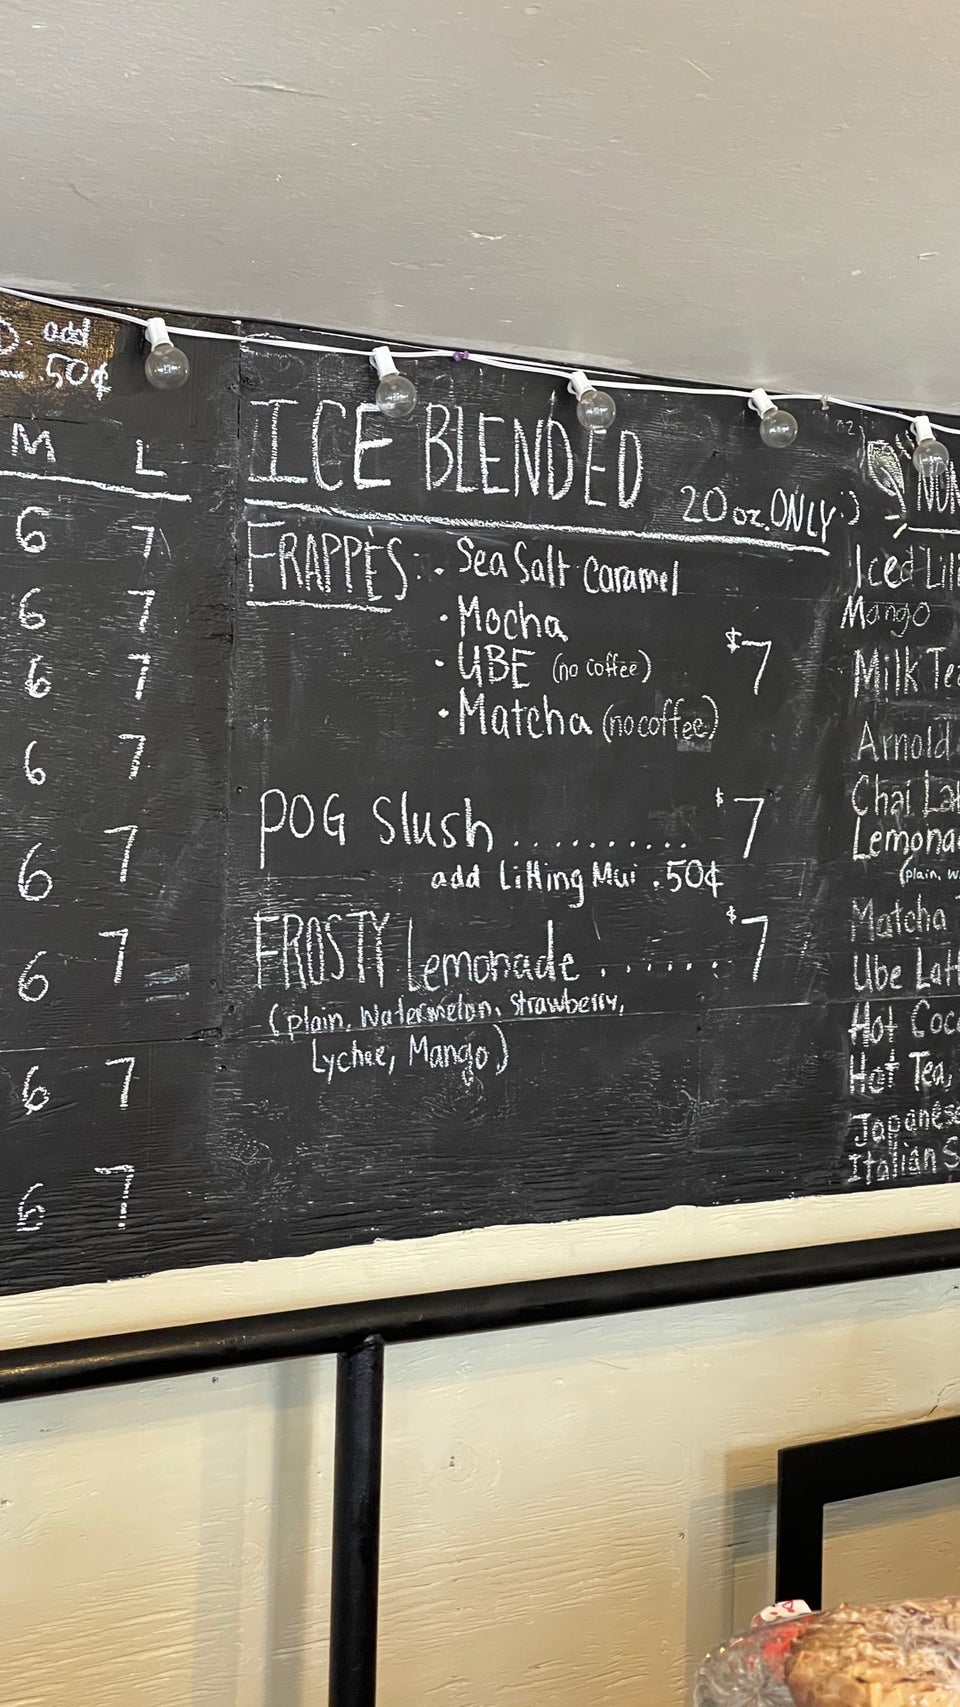 add
.50¢
M L
6 7
6 7
6 7
6 7
6 7
6 7
6 7
6 7
ICE BLENDED 20 oz. ONLY :)
FRAPPÈS: • Sea Salt Caramel
• Mocha
$7
• UBE (no coffee)
• Matcha (no coffee)
POG Slush .......... $7
add Li Hing Mui .50¢
FROSTY Lemonade ....... $7
(plain, Watermelon, Strawberry,
Lychee, Mango)
Iced
Mango
Milk
Arnold
Chai
Matcha
Ube
Hot
Hot Tea,
Italian